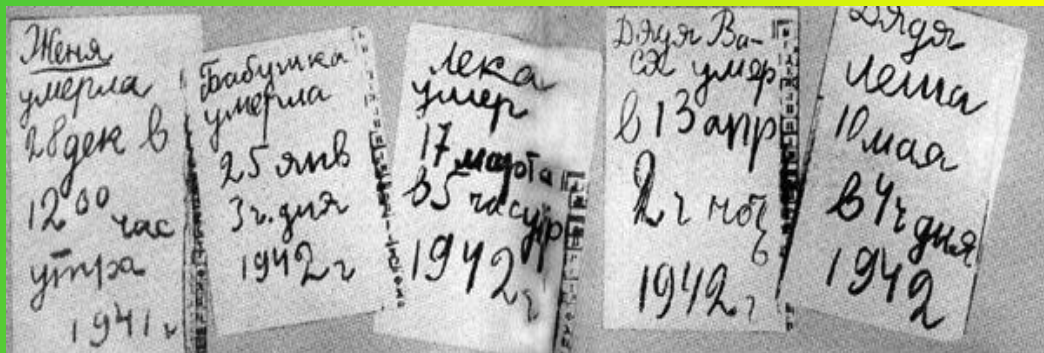 Женя
умерла
28 дек в
12 00
час
утра
1941 г
Бабушка
умерла
25 янв
3 ч. дня
1942 г
Лека
умер
17 марта
в 5 час утр
1942 г
Дядя Ва-
ся умер
в 13 апр
2 ч ноч
1942 г
Дядя
Леша
10 мая
в 4 ч дня
1942